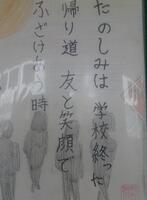 たのしみは 学校終った
帰り道 友と笑顔で
ふざけあう時